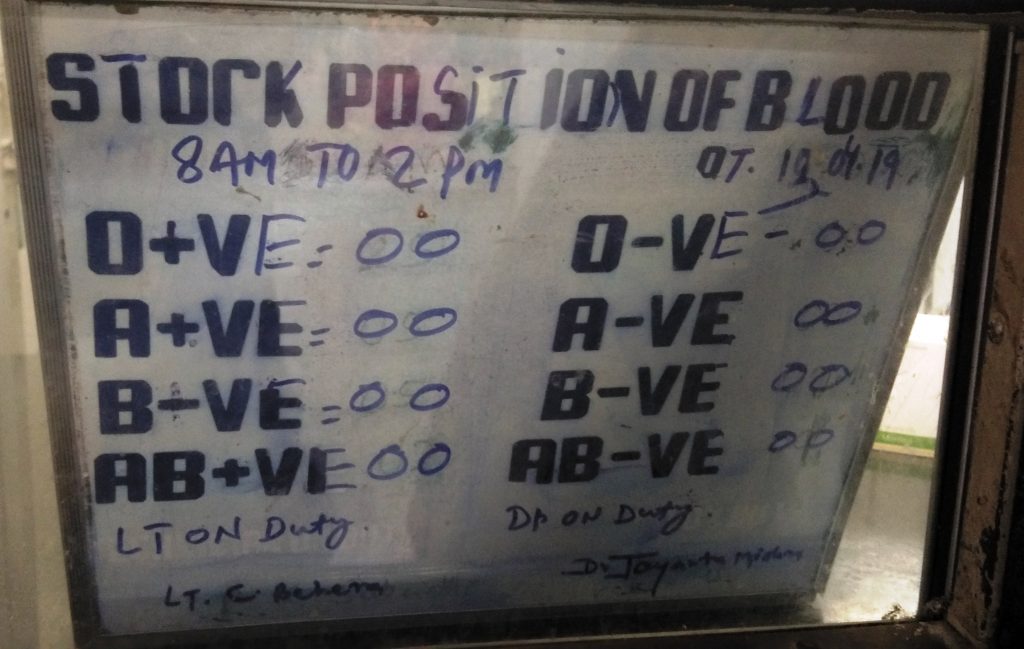 STOCK POSITION OF BLOOD
8AM TO 2 PM DT. 19.04.19
O+VE = 00 O-VE - 00
A+VE = 00 A-VE 00
B-VE = 00 B-VE 00
AB+VE 00 AB-VE 00
LT ON Duty. ON Duty.
LT. C Behera Dr Jayanta Mishra